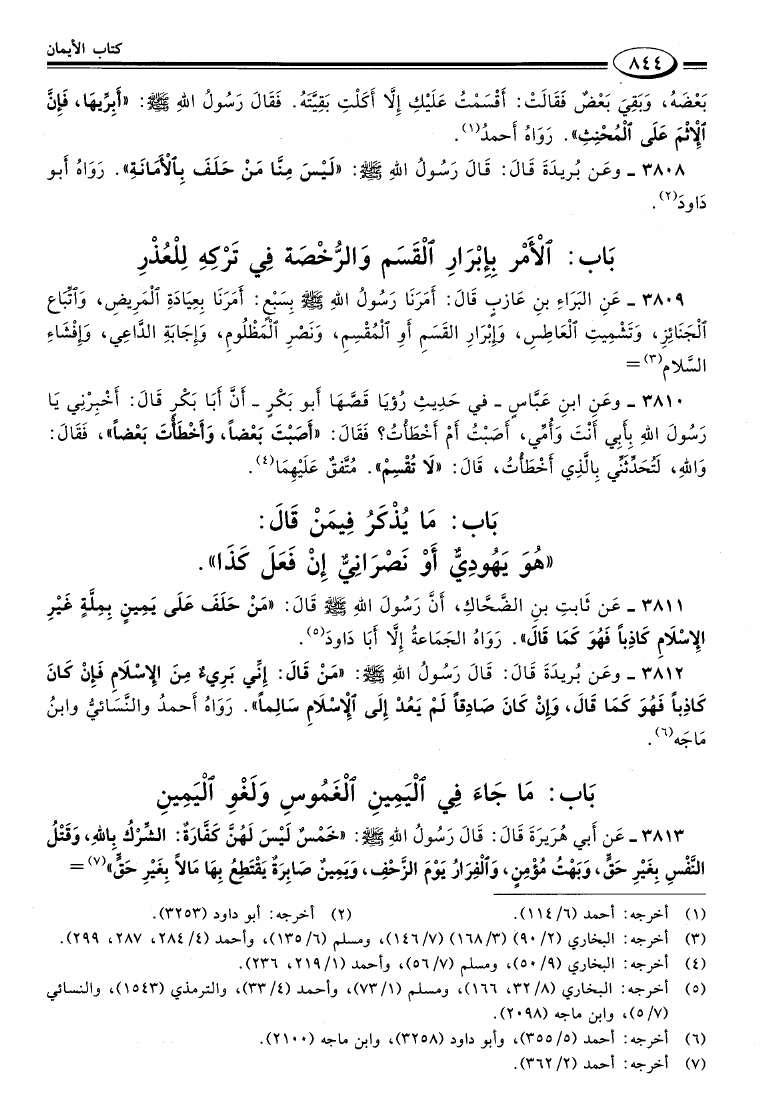 كتاب الأيمان
٨٤٤
بَعْضَهُ، وَبَقِيَ بَعْضٌ فَقَالَتْ: أَقْسَمْتُ عَلَيْكِ إِلَّا أَكَلْتِ بَقِيَّتَهُ. فَقَالَ رَسُولُ اللهِ ﷺ: «أَبِرِّيهَا، فَإِنَّ
ٱلْإِثْمَ عَلَى ٱلْمُحْنِثِ». رَوَاهُ أَحمدُ(١).
٣٨٠٨ ـ وعَن بُرِيدَةَ قَالَ: قَالَ رَسُولُ اللهِ ﷺ: «لَيْسَ مِنَّا مَنْ حَلَفَ بِٱلْأَمَانَةِ». رَوَاهُ أَبو
دَاودَ(٢).
بَاب: ٱلْأَمْر بِإِبْرَارِ ٱلْقَسَم وَالرُّخْصَة فِي تَرْكِهِ لِلْعُذْرِ
٣٨٠٩ ـ عَنِ البَرَاءِ بنِ عَازبٍ قَالَ: أَمَرَنَا رَسُولُ اللهِ ﷺ بِسَبْعٍ: أَمَرَنَا بِعِيَادَةِ ٱلْمَرِيضِ، وَٱتِّبَاعِ
ٱلْجَنَائِزِ، وَتَشْمِيتِ ٱلْعَاطِسِ، وَإِبْرَارِ القَسَمِ أَوِ ٱلْمُقْسِمِ، وَنَصْرِ ٱلْمَظْلُومِ، وَإِجَابَةِ الدَّاعِي، وَإِفْشَاءِ
السَّلامِ(٣)=
٣٨١٠ ـ وعَنِ ابنِ عَبَّاسٍ ـ في حَدِيثِ رُؤيَا قَصَّهَا أَبو بَكْرٍ ـ أَنَّ أَبَا بَكْرٍ قَالَ: أَخْبِرْنِي يَا
رَسُولَ اللهِ بِأَبِي أَنْتَ وَأُمِّي، أَصَبْتُ أَمْ أَخْطَأْتُ؟ فَقَالَ: «أَصَبْتَ بَعْضاً، وَأَخْطَأْتَ بَعْضاً»، فَقَالَ:
وَاللهِ، لَتُحَدِّثَنِّي بِالَّذِي أَخْطَأْتُ، قَالَ: «لَا تُقْسِمْ». مُتَّفقٌ عَلَيْهِمَا(٤).
بَاب: مَا يُذْكَرُ فِيمَنْ قَالَ:
«هُوَ يَهُودِيٌّ أَوْ نَصْرَانِيٌّ إِنْ فَعَلَ كَذَا».
٣٨١١ ـ عَن ثَابتِ بنِ الضَّحَّاكِ، أَنَّ رَسُولَ اللهِ ﷺ قَالَ: «مَنْ حَلَفَ عَلَى يَمِينٍ بِمِلَّةٍ غَيْرِ
الإِسْلَامِ كَاذِباً فَهُوَ كَمَا قَالَ». رَوَاهُ الجَماعةُ إِلَّا أَبَا دَاودَ(٥).
٣٨١٢ ـ وعَن بُرِيدَةَ قَالَ: قَالَ رَسُولُ اللهِ ﷺ: «مَنْ قَالَ: إِنِّي بَرِيءٌ مِنَ الإِسْلَامِ فَإِنْ كَانَ
كَاذِباً فَهُوَ كَمَا قَالَ، وَإِنْ كَانَ صَادِقاً لَمْ يَعُدْ إِلَى ٱلْإِسْلَامِ سَالِماً». رَوَاهُ أَحمدُ والنَّسائيُّ وابنُ
مَاجَه(٦).
بَاب: مَا جَاءَ فِي ٱلْيَمِينِ ٱلْغَمُوسِ وَلَغْوِ ٱلْيَمِينِ
٣٨١٣ ـ عَن أَبي هُرَيرَةَ قَالَ: قَالَ رَسُولُ اللهِ ﷺ: «خَمْسٌ لَيْسَ لَهُنَّ كَفَّارَةٌ: الشِّرْكُ بِاللهِ، وَقَتْلُ
النَّفْسِ بِغَيْرِ حَقٍّ، وَبَهْتُ مُؤْمِنٍ، وَٱلْفِرَارُ يَوْمَ الزَّحْفِ، وَيَمِينٌ صَابِرَةٌ يَقْتَطِعُ بِهَا مَالاً بِغَيْرِ حَقٍّ»(٧)=
(١) أخرجه: أحمد (١١٤/٦). (٢) أخرجه: أبو داود (٣٢٥٣).
(٣) أخرجه: البخاري (٩٠/٢) (١٦٨/٣) (١٤٦/٧)، ومسلم (١٣٥/٦)، وأحمد (٢٨٤/٤، ٢٨٧، ٢٩٩).
(٤) أخرجه: البخاري (٥٠/٩)، ومسلم (٥٦/٧)، وأحمد (٢١٩/١، ٢٣٦).
(٥) أخرجه: البخاري (٣٢/٨، ١٦٦)، ومسلم (٧٣/١)، وأحمد (٣٣/٤)، والترمذي (١٥٤٣)، والنسائي
(٥/٧)، وابن ماجه (٢٠٩٨).
(٦) أخرجه: أحمد (٣٥٥/٥)، وأبو داود (٣٢٥٨)، وابن ماجه (٢١٠٠).
(٧) أخرجه: أحمد (٣٦٢/٢).